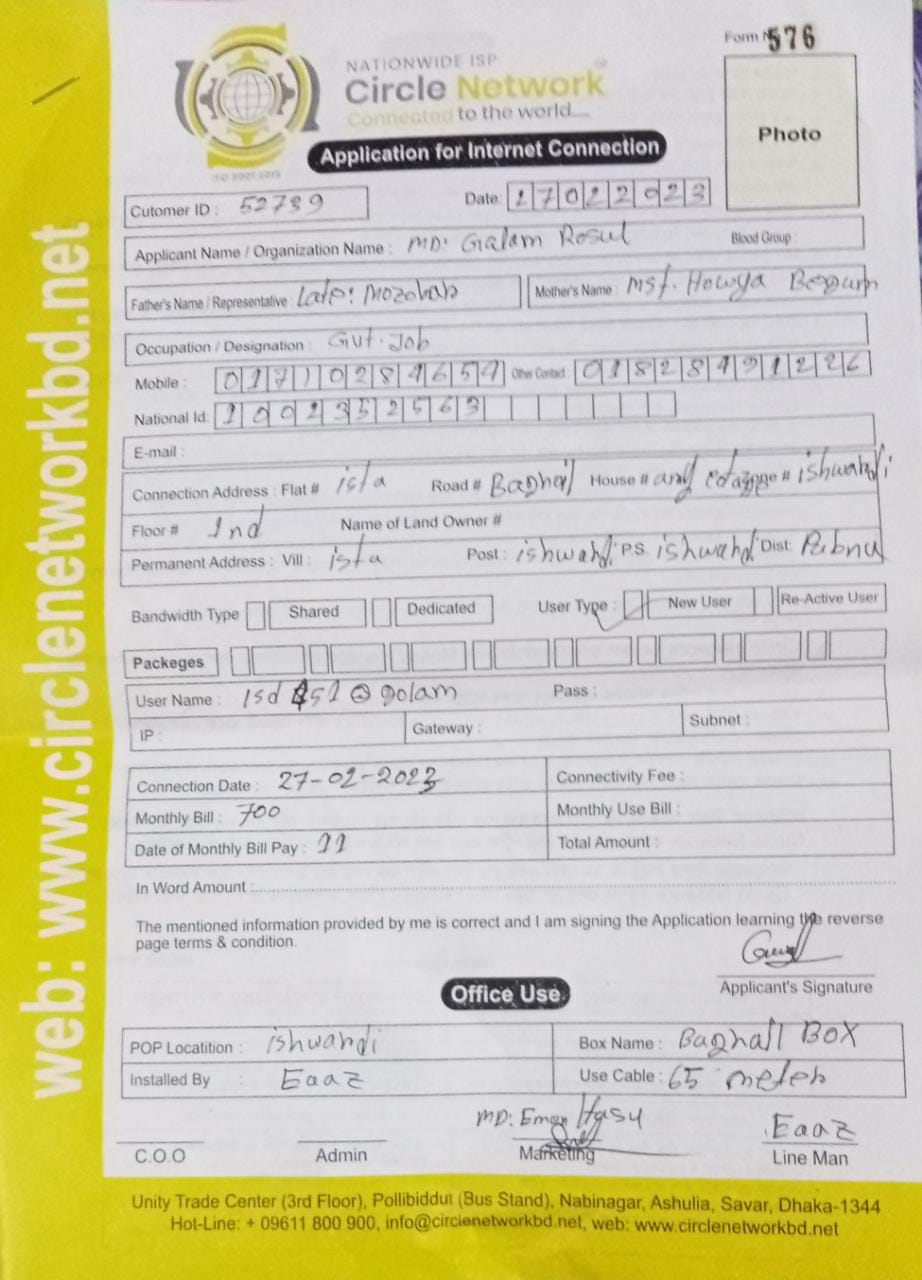 Form N 576
NATIONWIDE ISP
Circle Network
Connected to the world.....
ISO 9001 2015
Photo
Application for Internet Connection
Cutomer ID : 52739 Date: 17022023
Applicant Name / Organization Name : MD: Galam Rosul Blood Group :
Father's Name / Representative : Late: Mozohab Mother's Name : Mst. Howya Begum
Occupation / Designation : Gvt. Job
Mobile : 01710284654 Other Contact : 01828491226
National Id: 1002352563
E-mail :
Connection Address : Flat # ista Road # Baghail House # # ishwahdi
Floor # 2nd Name of Land Owner #
Permanent Address : Vill : ista Post : ishwahdi P.S. ishwahdi Dist: Pabna
Bandwidth Type Shared Dedicated User Type: New User Re-Active User
Packeges
User Name : @ golam Pass :
IP : Gateway : Subnet :
Connection Date : 27-02-2023 Connectivity Fee :
Monthly Bill : 700 Monthly Use Bill :
Date of Monthly Bill Pay : 11 Total Amount :
In Word Amount :
The mentioned information provided by me is correct and I am signing the Application learning the reverse
page terms & condition.
Applicant's Signature
Office Use
POP Locatition : ishwahdi Box Name : Baghail BOX
Installed By : Eaaz Use Cable : 65 meter
MD: Eman Eaaz
C.O.O Admin Marketing Line Man
Unity Trade Center (3rd Floor), Pollibiddut (Bus Stand), Nabinagar, Ashulia, Savar, Dhaka-1344
Hot-Line: + 09611 800 900, info@circlenetworkbd.net, web: www.circlenetworkbd.net
web: www.circlenetworkbd.net